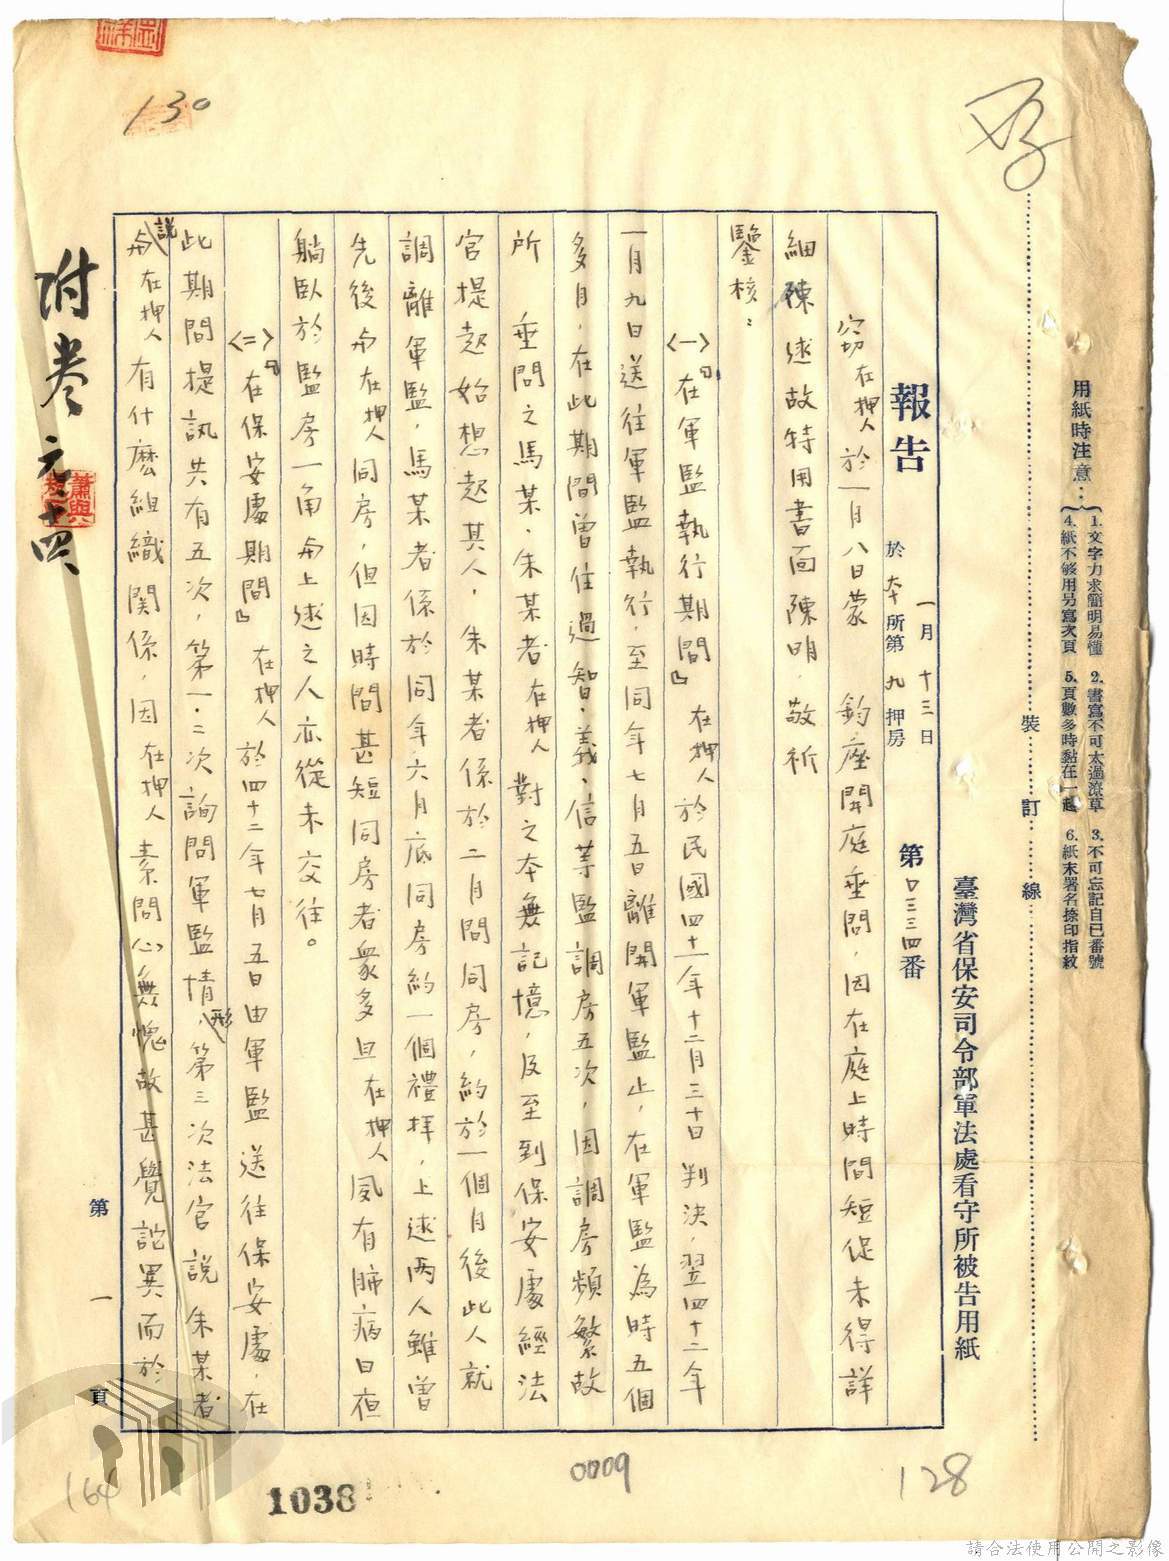 用紙時注意：
1. 文字力求簡明易懂　2. 書寫不可太過潦草　3. 不可忘記自己番號
4. 紙不够用另寫次頁　5. 頁數多時黏在一起　6. 紙末署名捺印指紋
裝訂線
臺灣省保安司令部軍法處看守所被告用紙
報告
一月十三日
於本所第九押房
第〇三三四番
窃在押人於一月八日蒙　鈞座開庭垂問，因在庭上時間短促未得詳
細陳述故特用書面陳明，敬祈
鑒核：
〈一〉『在軍監執行期間』在押人於民國四十一年十二月三十日判決，翌四十二年
一月九日送往軍監執行，至同年七月五日離開軍監止，在軍監為時五個
多月，在此期間曾住過智、義、信等監調房五次，因調房頻繁故
所　垂問之馬某、朱某者在押人對之本無記憶，及至到保安處經法
官提起始想起其人，朱某者係於二月間同房，約於一個月後此人就
調離軍監，馬某者係於同年六月底同房約一個禮拜，上述兩人雖曾
先後与在押人同房，但因時間甚短同房者衆多且在押人夙有肺病日夜
躺臥於監房一角与上述之人亦從未交往。
〈二〉『在保安處期間』在押人於四十二年七月五日由軍監送往保安處，在
此期間提訊共有五次，第一、二次詢問軍監情形，第三次法官說朱某者
說与在押人有什麽組織関係，因在押人素問心無愧故甚覺詑異而於
第一頁
附卷
元、十四
130
128
0009
1038
164
請合法使用公開之影像